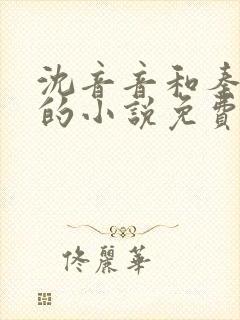 沈音音和
的小說免費
佟麗華